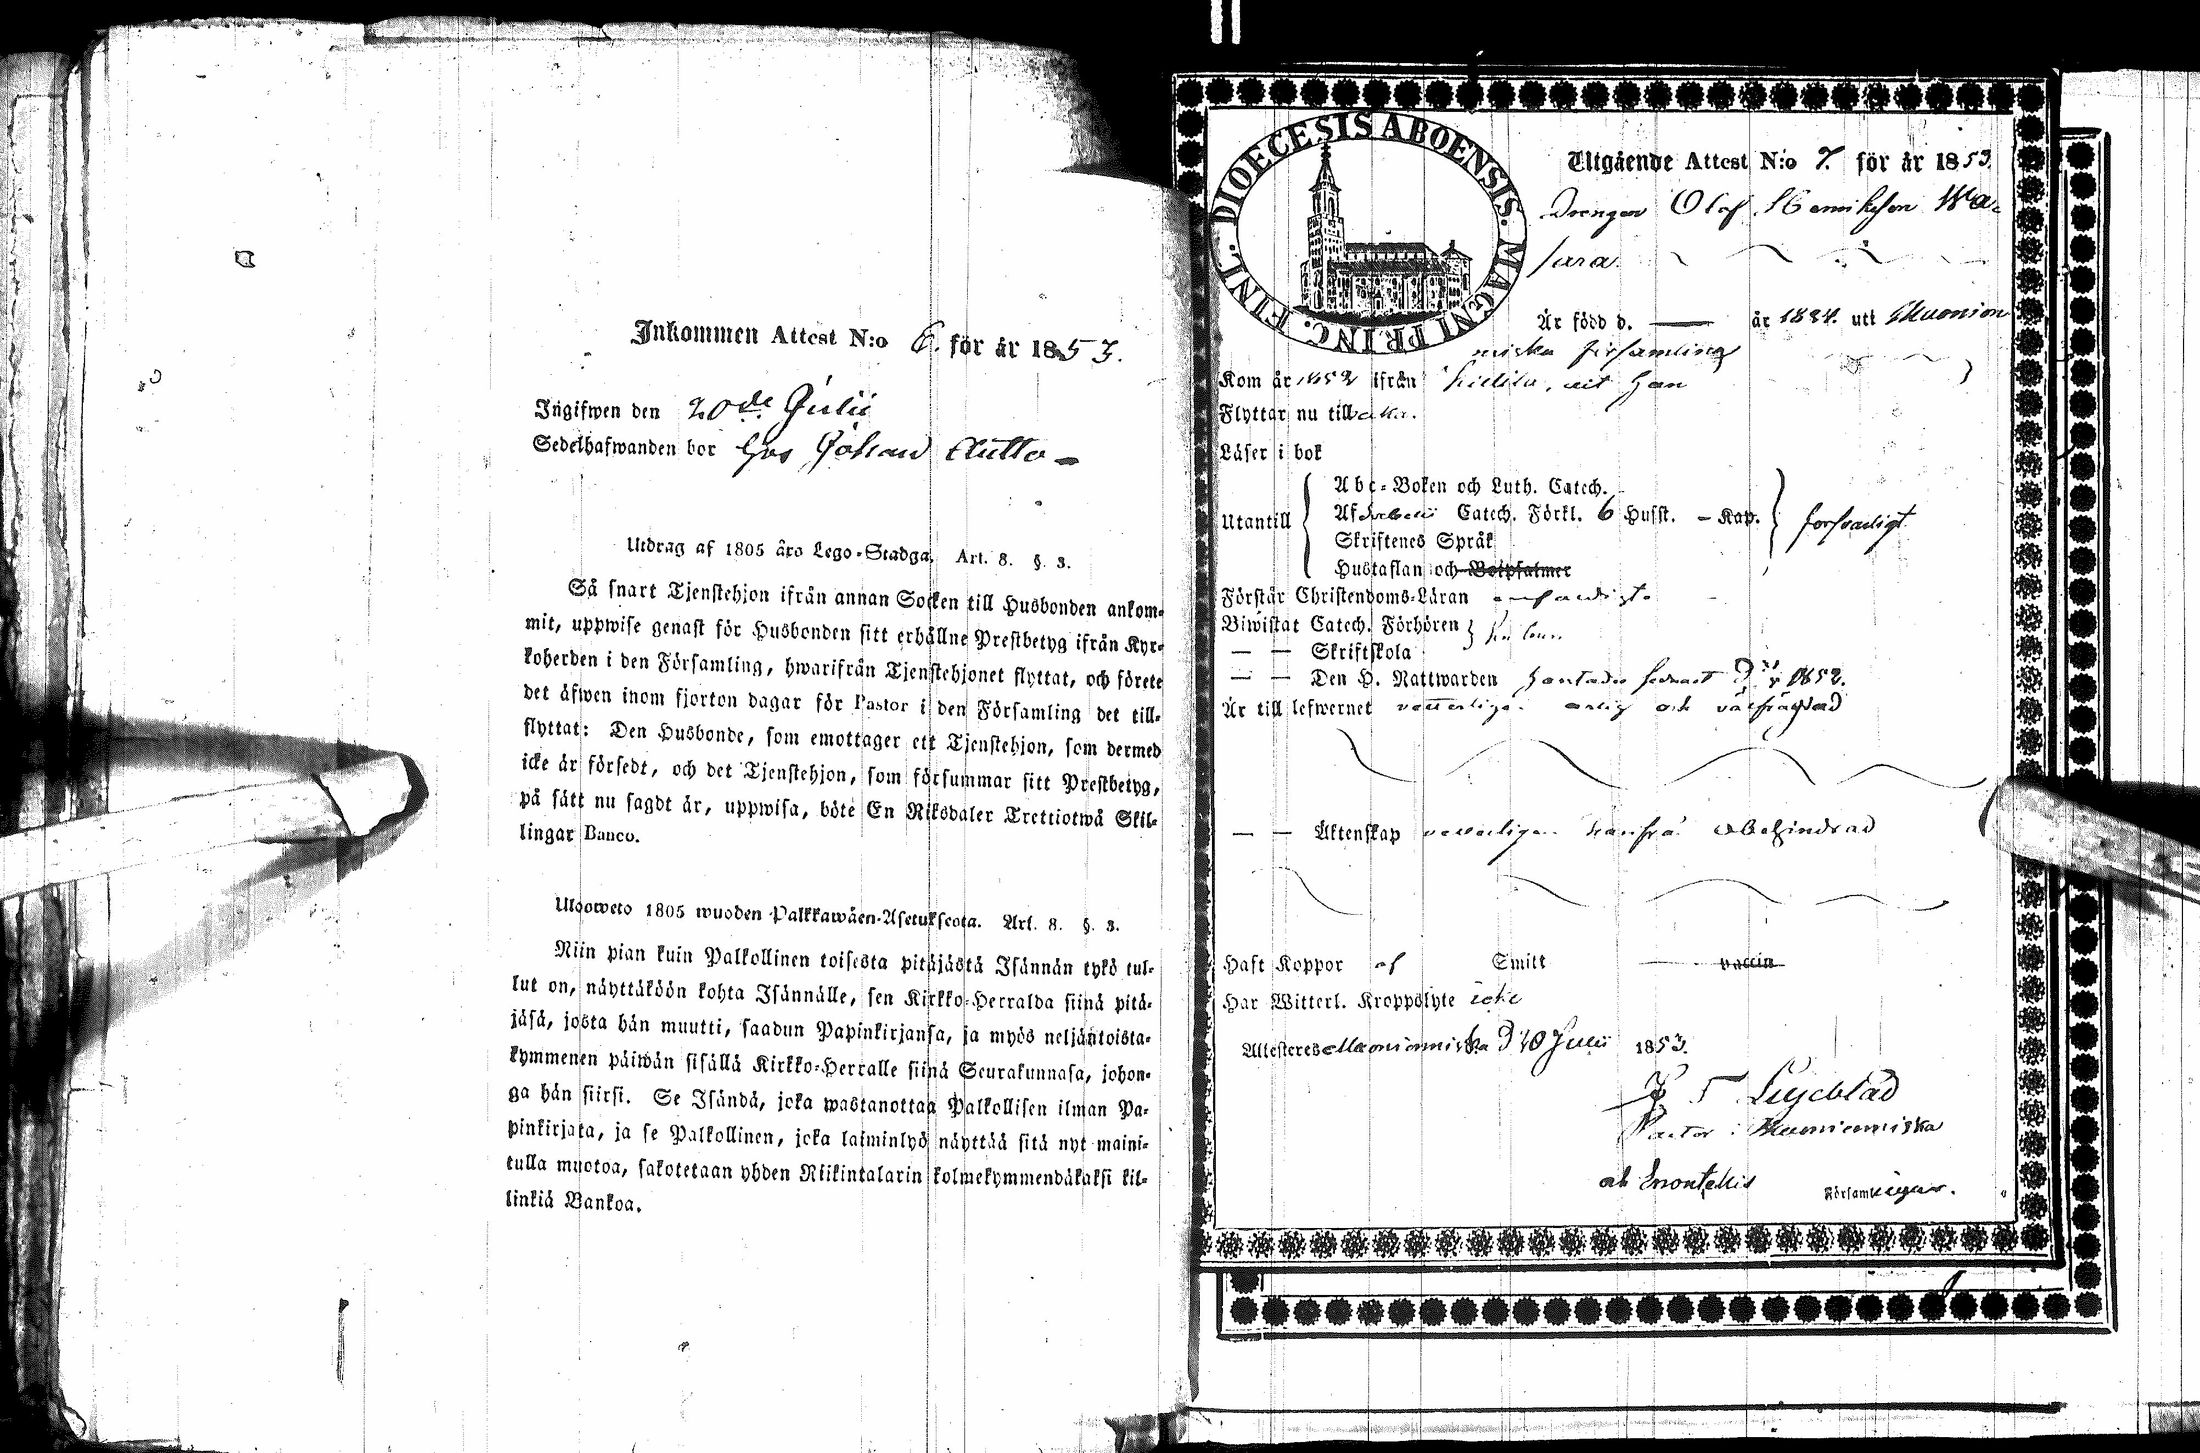 Inkommen Attest N:o 6. för år 1853.
Ingifwen den 20de Julii
Sedelhafwanden bor hos Johan Autto
Utdrag af 1805 års Lego-Stadga, Art. 8. §. 3.
Så snart Tjenstehjon ifrån annan Socken till Husbonden ankom-
mit, uppwise genast för Husbonden sitt erhållne Prestbetyg ifrån Kyr-
koherden i den Församling, hwarifrån Tjenstehjonet flyttat, och förete
det äfwen inom fjorton dagar för Pastor i den Församling det till-
flyttat: Den Husbonde, som emottager ett Tjenstehjon, som dermed
icke är försedt, och det Tjenstehjon, som försummar sitt Prestbetyg,
på sätt nu sagdt är, uppwisa, böte En Riksdaler Trettiotwå Skil-
lingar Banco.
Ulosweto 1805 wuoden Palkkawäen-Asetuksesta. Art. 8. §. 3.
Niin pian kuin Palkollinen toisesta pitäjästä Isännän tykö tul-
lut on, näyttäköön kohta Isännälle, sen Kirkko-Herralda siinä pitä-
jäsä, josta hän muutti, saadun Papinkirjansa, ja myös neljäntoista-
kymmenen päiwän sisällä Kirkko-Herralle siinä Seurakunnasa, johon-
ga hän siirsi. Se Isändä, joka wastanottaa Palkollisen ilman Pa-
pinkirjata, ja se Palkollinen, joka laiminlyö näyttää sitä nyt maini-
tulla muotoa, sakotetaan yhden Riikintalarin kolmekymmendäkaksi kil-
linkiä Bankoa.
DIOECESIS ABOENSIS. MAGNI PRINC. FINL.
Utgående Attest N:o 7. för år 1853.
Drengen Olof Henriksson Wa-
sara
Är född d. — år 1824. utt Muonion
niska församling
Kom år 1852 ifrån dit han
Flyttar nu
Läser i bok
Utantill
Abc-Boken och Luth. Catech.
Af Svebelii Catech. Förkl. 6 Husst. - Kap. försvarligt
Skriftenes Språk
Hustaflan och Botpsalmer
Förstår Christendoms-Läran
Biwistat Catech. Förhören
— — Skriftskola
— — Den H. Nattwarden senast 1852.
Är till lefwernet ärlig och välfrägdad
— — Äktenskap härifrån obehindrad
Haft Koppor af Smitt vaccin
Har Witterl. Kroppslyte icke
Attesteres Muonionniska d 10 Julii 1853.
Pastor i Muonionniska
och Enontekis Församlingar.